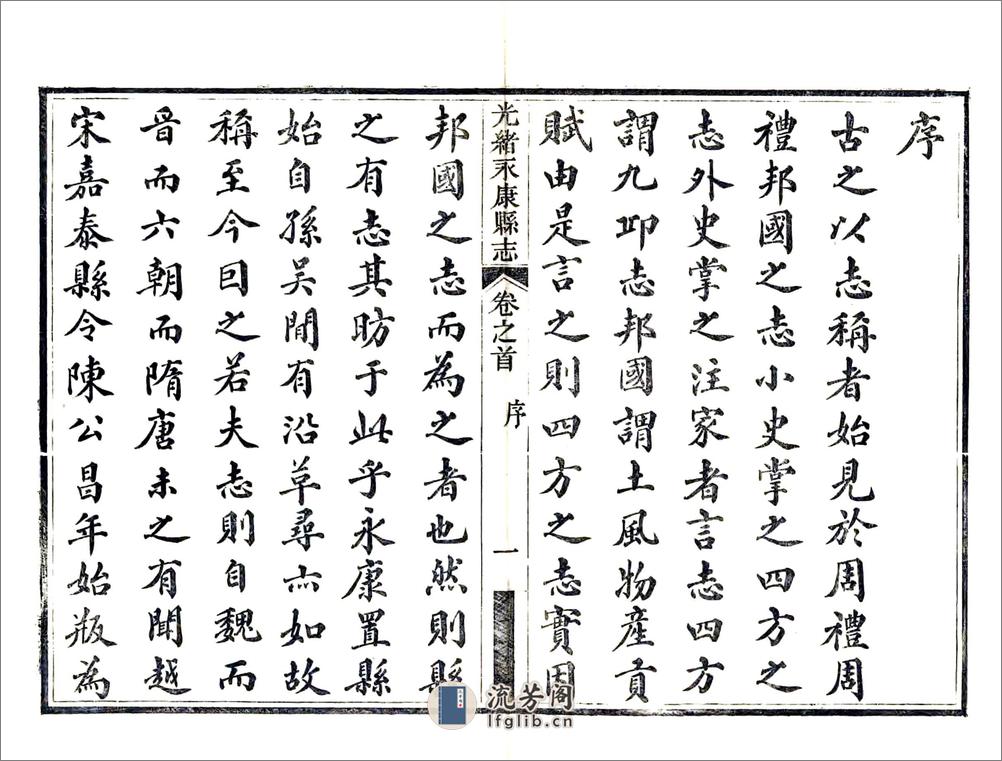 序
古之以志稱者始見於周禮周
禮邦國之志小史掌之四方之
志外史掌之注家者言志四方
謂九邱志邦國謂土風物產貢
賦由是言之則四方之志實因
光緒永康縣志
卷之首
序
一
邦國之志而為之者也然則縣
之有志其昉于此乎永康置縣
始自孫吳間有沿革尋亦如故
稱至今因之若夫志則自魏而
晉而六朝而隋唐未之有聞越
宋嘉泰縣令陳公昌年始瓶為
流芳阁
lfglib.cn